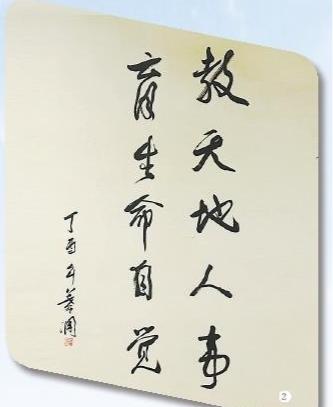 教天地人事
育生命自觉
丁酉年
2